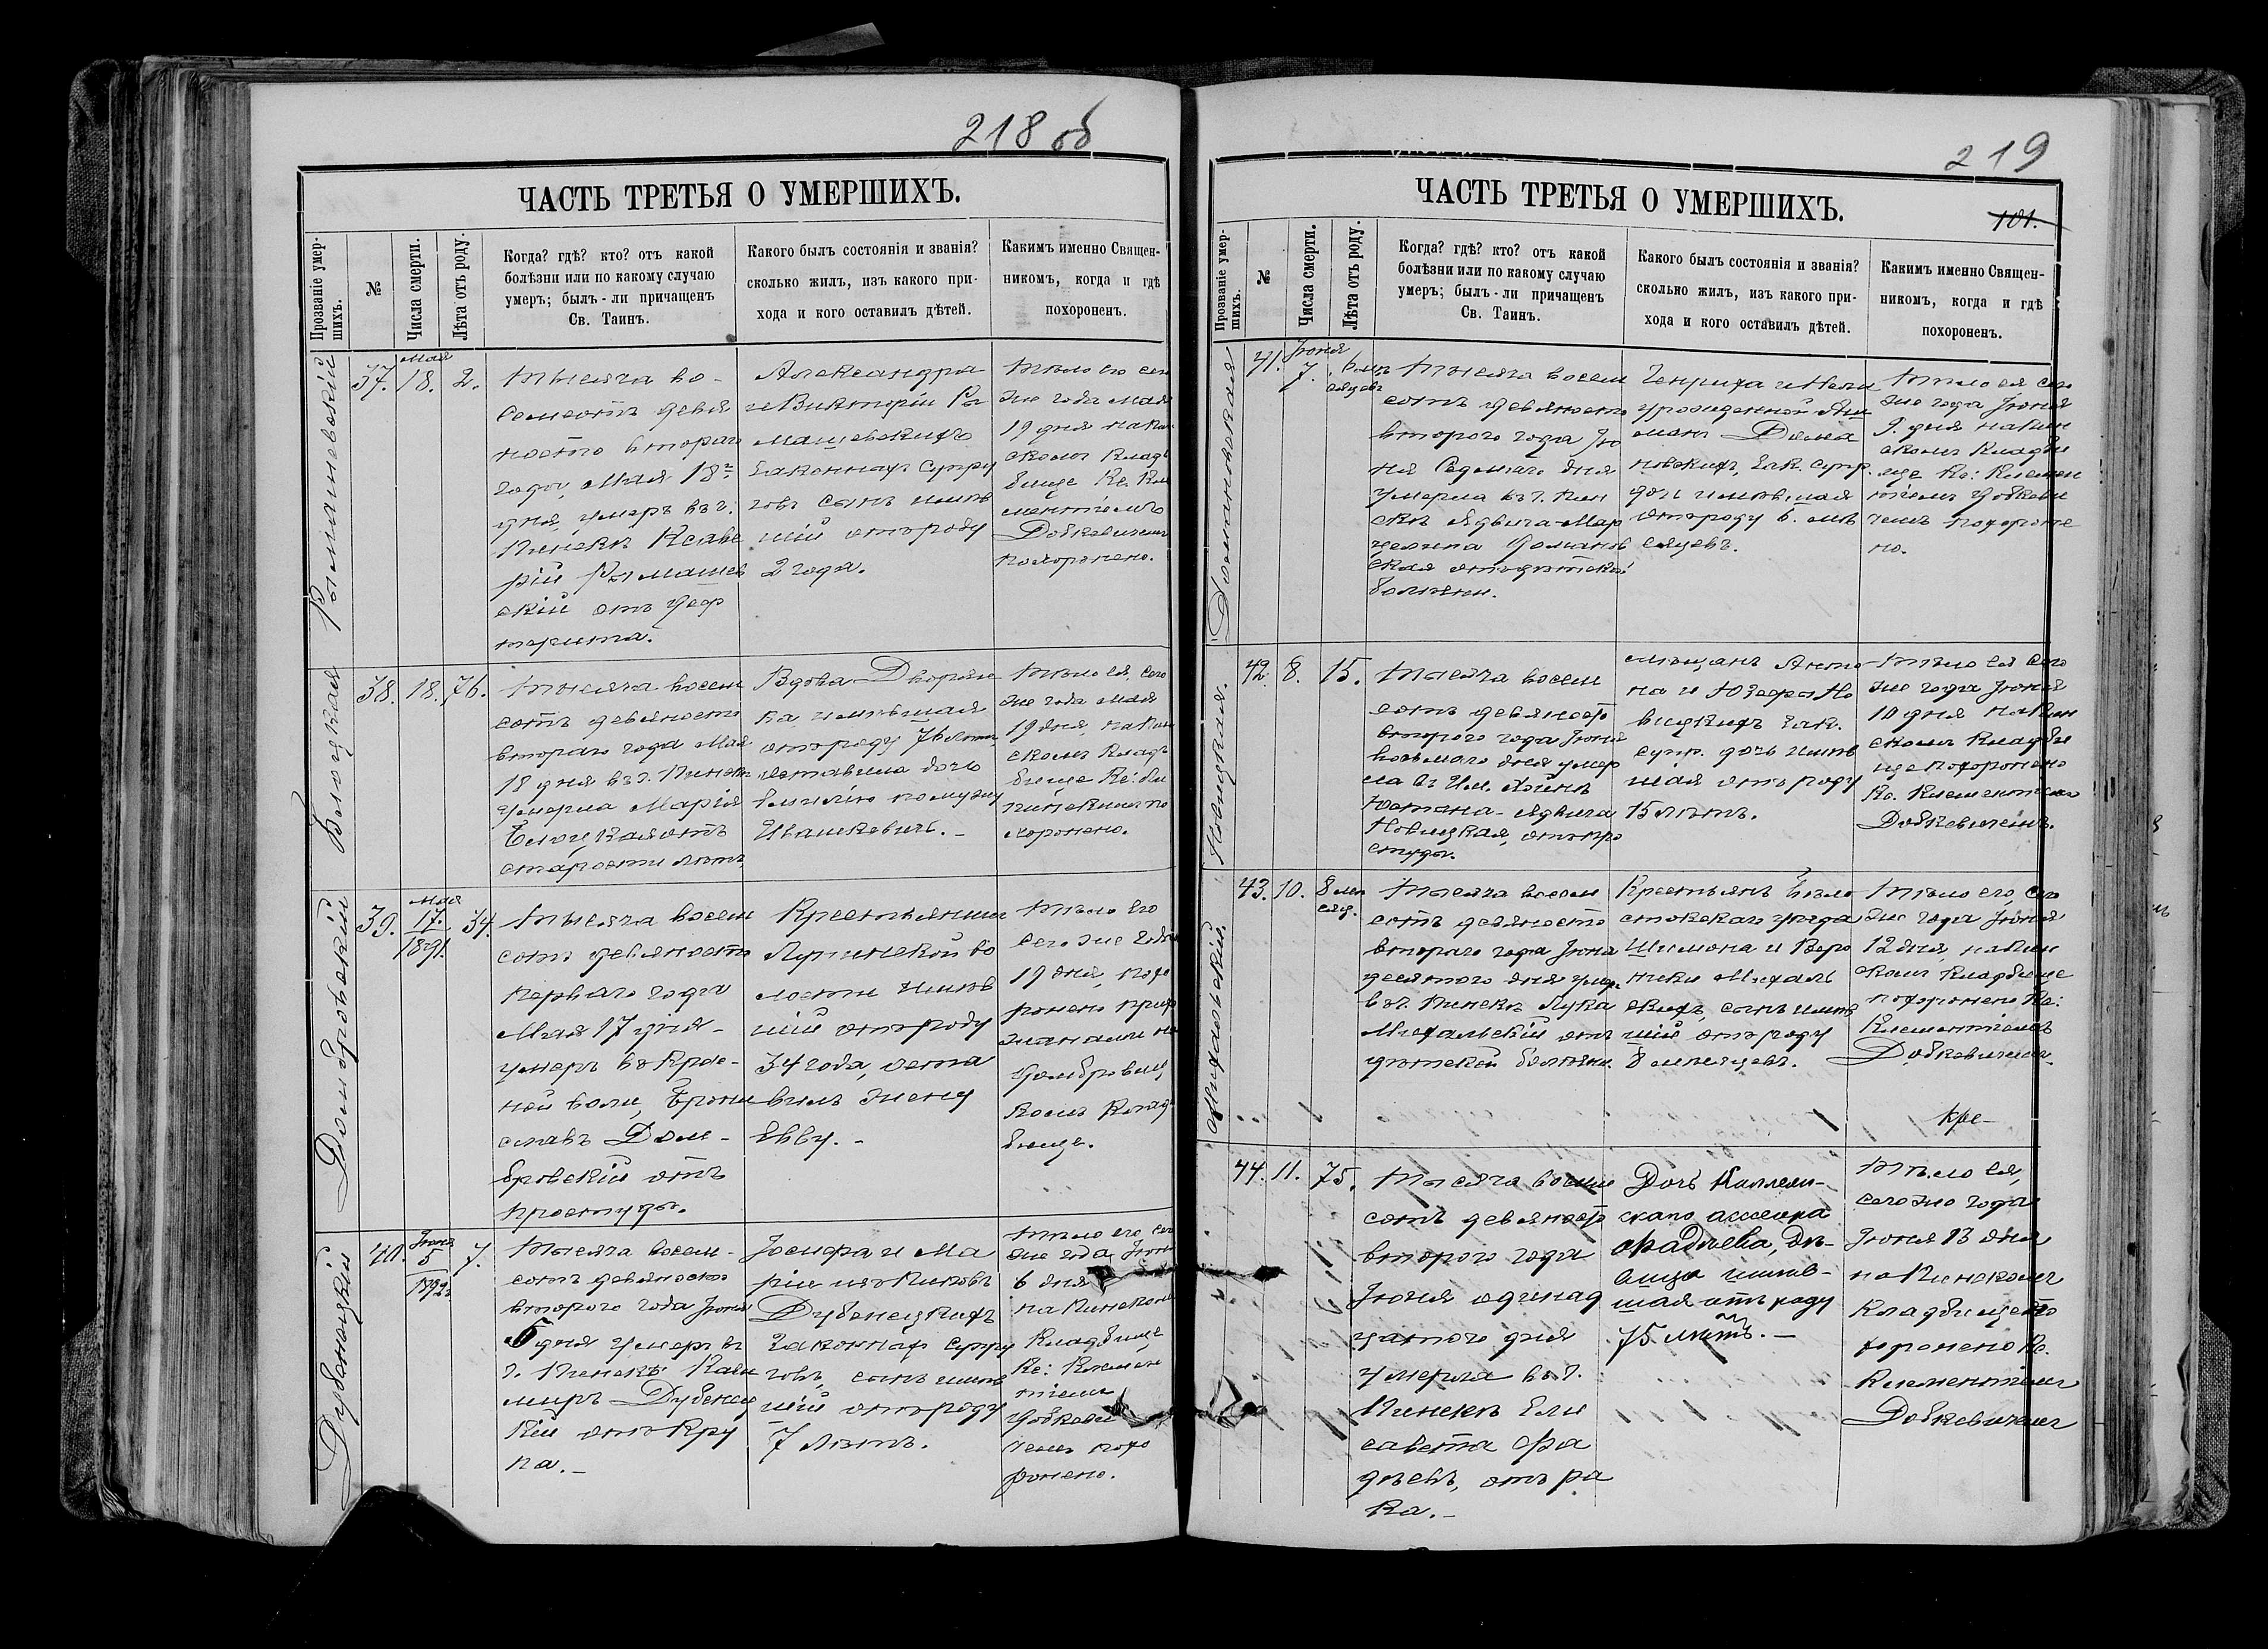 218 об
ЧАСТЬ ТРЕТЬЯ О УМЕРШИХЪ.
Прозваніе умер-
шихъ.
№
Числа смерти.
Лѣта отъ роду.
Когда? гдѣ? кто? отъ какой
болѣзни или по какому случаю
умеръ; былъ-ли причащенъ
Св. Таинъ.
Какого былъ состоянія и званія?
сколько жилъ, изъ какого при-
хода и кого оставилъ дѣтей.
Какимъ именно Священ-
никомъ, когда и гдѣ
похороненъ.
Рымашевскій
37.
Мая
18.
2.
Тысяча во-
семсотъ девя
ностого втораго
года, Мая 18го
дня, умеръ въ г.
Пинскѣ Ксаве
рій Рымашев
скій отъ деф
терита.
Александра
и Викторіи Ры
машевскихъ
законныхъ супру
говъ сынъ имѣв
шій отъ роду
2 года.
Тѣло его сего
же года Мая
19 дня на Пин
скомъ Клад
бище Кс. Кле
ментіемъ
Добкевичемъ
похоронено.
Белоцкая
38.
18.
76.
Тысяча восем
сотъ девяносто
втораго года Мая
18 дня въ г. Пинскѣ
умерла Марія
Белоцкая отъ
старости лѣтъ
Вдова Дворян
ка, имѣвшая
отъ роду 76 лѣтъ,
оставила дочь
Емилію по мужу
Ивашкевичъ.-
Тѣло ея, сего
же года Мая
19 дня, на Пин
скомъ Клад
бище
хоронено.
Домбровскій
39.
Мая
17.
1891.
34.
Тысяча восем
сотъ девяносто
перваго года
Мая 17 дня-
умеръ въ Крас-
ной воли, Брони
славъ Дом-
бровскій отъ
простуды.
Крестьянинъ
Лунинской во
лости имѣв
шій отъ роду
34 года, оста
вилъ жену
Еву.-
Тѣло его
сего же года
19 дня, похо
ронено прихо
жанами на
Домбровиц
комъ Клад
бище.
Дубенецкій
40.
Іюня
5
1892
7.
Тысяча восем-
сотъ девяносто
втораго года Іюня
5 дня умеръ въ
г. Пинскѣ Кази
миръ Дубенец
кій отъ кру
па.-
Іосифа и Ма
ріи
Дубенецкихъ
Законныхъ супру
говъ, сынъ имѣв
шій отъ роду
7 лѣтъ.
Тѣло его, сего
же года Іюня
6 дня
на Пинскомъ
Кладбище
Кс: Клемен
тіемъ
Добкеви
чемъ похо
ронено.
219
ЧАСТЬ ТРЕТЬЯ О УМЕРШИХЪ.
101.
Прозваніе умер-
шихъ.
№
Числа смерти.
Лѣта отъ роду.
Когда? гдѣ? кто? отъ какой
болѣзни или по какому случаю
умеръ; былъ-ли причащенъ
Св. Таинъ.
Какого былъ состоянія и званія?
сколько жилъ, изъ какого при-
хода и кого оставилъ дѣтей.
Какимъ именно Священ-
никомъ, когда и гдѣ
похороненъ.
Домановская
41.
Іюня
7.
6 мѣ
сяцевъ
Тысяча восем
сотъ девяносто
второго года Ію
ня Седьмаго дня
умерла въ г. Пин
скѣ Ядвига-Мар
целина Доманов
ская отъ дѣтской
болѣзни.
Генриха и
урожденной
Дома
новскихъ, зак. супр.
дочь имѣвшая
отъ роду 6. мѣ
сяцевъ.
Тѣло ея сего
же года Іюня
9. дня на Пин
скомъ Кладби
ще Кс: Клемен
тіемъ Добкеви
чемъ похороне
но.
Новицкая.
42.
8.
15.
Тысяча восем
сотъ девяносто
второго года Іюня
восьмаго дня умер
ла въ Им.
Юстына-Ядвига
Новицкая, отъ про
студы.
мѣщанъ Анто
на и Юзефы Но
вицкихъ зак.
супр. дочь имѣв
шая отъ роду
15 лѣтъ.
Тѣло ея сего
же года Іюня
10 дня на Пин
скомъ Кладби
ще похоронено
Кс. Клементіемъ
Добкевичемъ.
Михальскій.
43.
10.
8 мѣ
сяц.
Тысяча восем
сотъ девяносто
втораго года Іюня
десятого дня умер.
въ г. Пинскѣ Лука
Михальскій отъ
дѣтской болѣзни.
Крестьянъ Бѣло
стокскаго уѣзда
Шимона и Веро
ники Михаль
скихъ, сынъ имѣв
шій отъ роду
8 мѣсяцевъ.
Тѣло его, сего
же года Іюня
12 дня, на Пин
скомъ Кладбище
похоронено Кс:
Клементіемъ
Добкевичемъ.
44.
11.
75.
Тысяча восем
сотъ девяносто
второго года
Іюня одинад
цатого дня
умерла въ г.
Пинскѣ Ели
савета Фа
дѣевъ, отъ ра
ка.-
Дочь Коллеж-
скаго ассесора
Фадѣева, дѣ-
вица имѣв-
шая отъ роду
75 лѣтъ.-
Тѣло ея,
сего же года
Іюня 13 дня
на Пинскомъ
Кладбище по
хоронено Кс.
Клементіемъ
Добкевичемъ